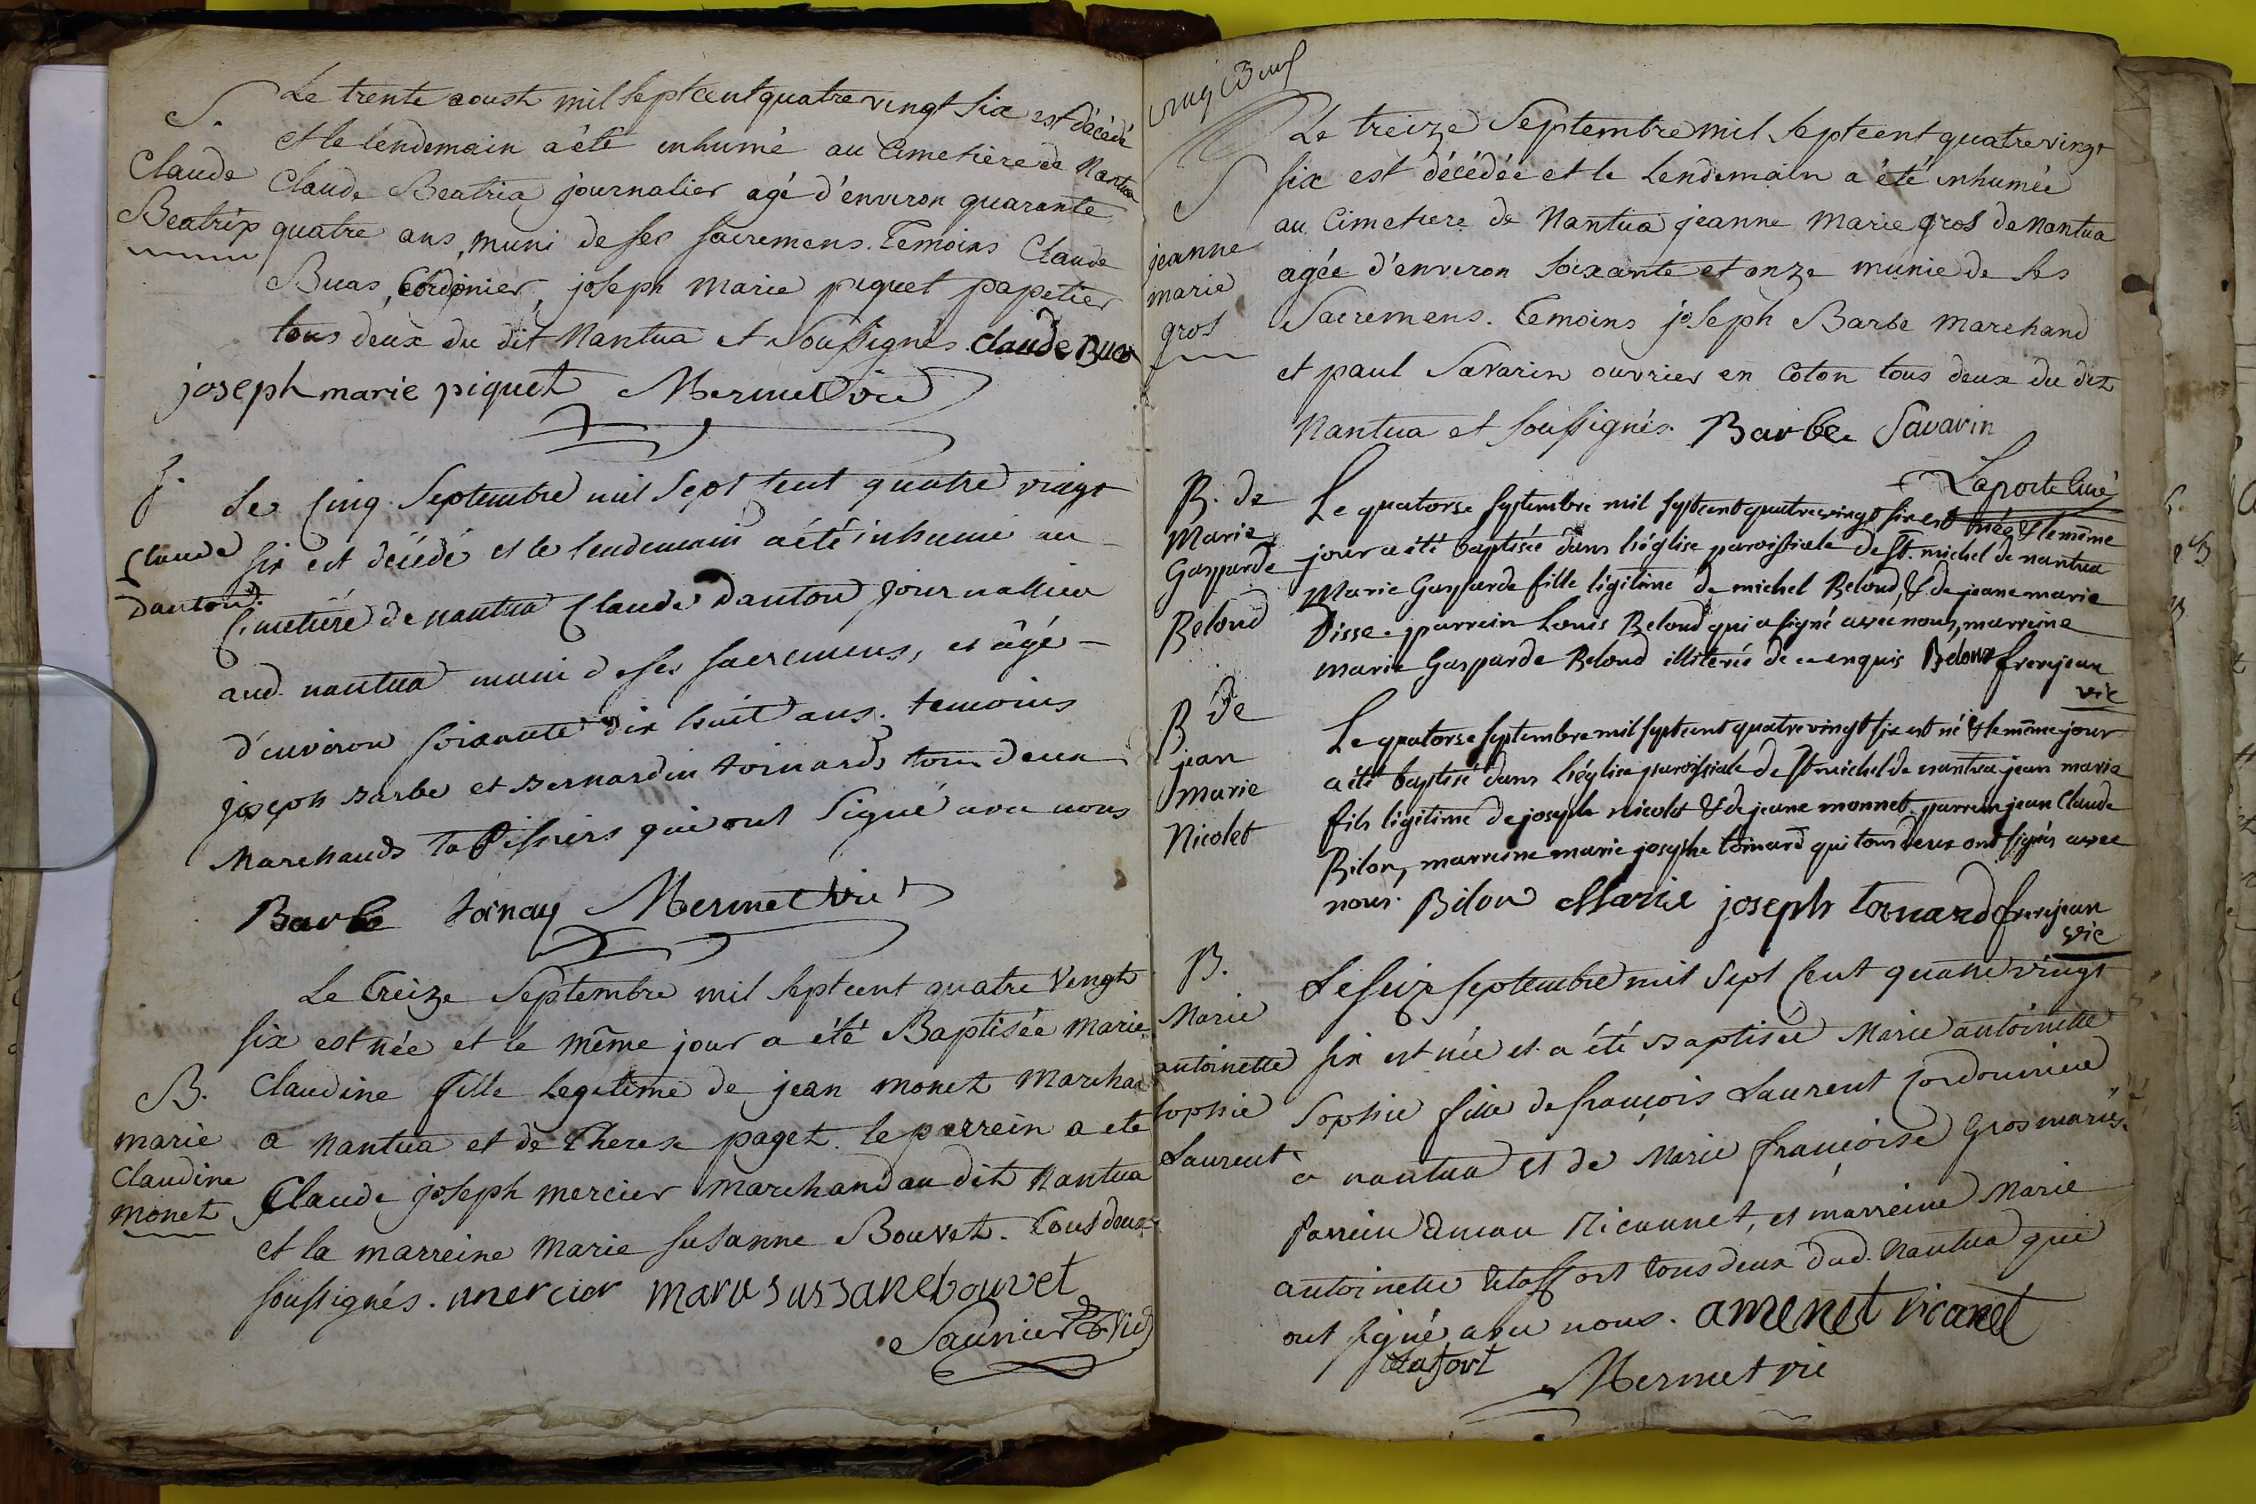 S.
Claude
Beatrix
Le trente aoust mil septcent quatre vingt six est décédé
et le lendemain a été inhumé au Cimetiere de Nantua
Claude Beatrix journalier agé d'environ quarante
quatre ans, muni de ses sacremens. Temoins Claude
Buas, Cordonier, joseph Marie piquet papetier
tous deux du dit Nantua et soussignés. Claude Buas
joseph marie piquet Mermet vic
S.
Claude
Danton
Le Cinq Septembre mil Sept Cent quatre vingt
six est décédé et le lendemain a été inhumé au
Cimetiére de nantua Claude Danton Journallier
aud. nantua muni de ses sacremens, et âgé
d'environ soixante dix huit ans. temoins
joseph Barbe et Bernardin toinard, tous deux
Marchands tapissiers qui ont Signé avec nous
Barbe Mermet vic
B.
marie
Claudine
monet
Le Treize Septembre mil Septcent quatre Vengt
six est née et le même jour a été Baptisée Marie
Claudine fille Legitime de jean monet Marchan
a Nantua et de Therese paget. le perrein a ete
Claude joseph mercier Marchand au dit Nantua
et la marreine Marie Susanne Bouvet. Tous deux
soussignés. mercier marie sussane bouvet
Saunier Vic
S
jeanne
marie
gros
Le treize Septembre mil septcent quatre vingt
six est décédée et le Lendemain a été inhumée
au Cimetiere de Nantua jeanne Marie gros de Nantua
agée d'environ soixante et onze munie de ses
Sacremens. Temoins joseph Barbe Marchand
et paul Savarin ouvrier en Coton tous deux du dit
Nantua et soussignés. Barbe Savarin
Laporte Curé
B. de
Marie
Gasparde
Beloud
Le quatorse septembre mil septcent quatrevingt six est née & le même
jour a été baptisée dans l'église paroissiale de St. michel de nantua
Marie Gasparde fille légitime de michel Beloud, & de jeane marie
Disse. parrein Louis Beloud qui a signé avec nous, marreine
marie Gasparde Beloud illiterée de ce enquis Beloux frerejean
vic
B de
jean
Marie
Nicolet
Le quatorse septembre mil septcent quatrevingt six est né & le même jour
a été baptisé dans l'église paroissiale de St michel de nantua jean marie
fils légitime de joseph nicolet & de jeane monnet. parrein jean Claude
Bilon, marreine marie josephe toinard qui tous deux ont signés avec
nous. Bilon Marie joseph toinard frerejean
vic
B.
Marie
antoinette
Sophie
Laurent
Le seize septembre mil Sept Cent quatre vingt
six est née et a été Baptisée Marie antoinette
Sophie fille de françois Laurent Cordonnier
a nantua et de Marie françoise Gros mariés.
Parrein et marreine Marie
antoinette tous deux dud. Nantua qui
ont signé avec nous.
Mermet vic